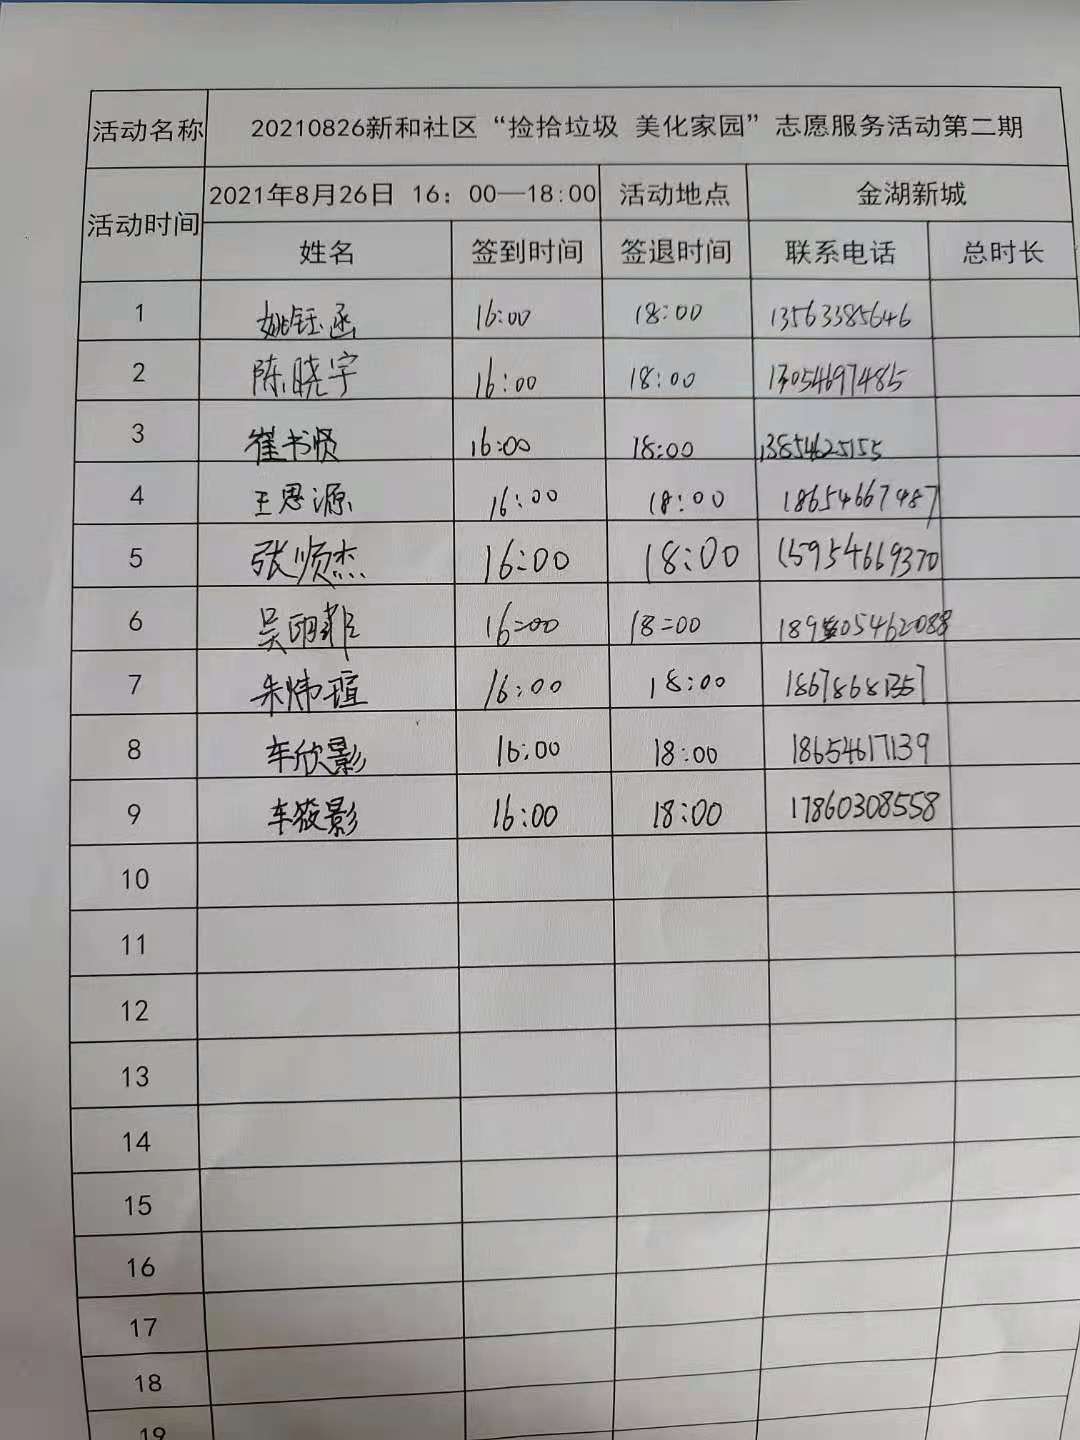 活动名称 20210826新和社区“捡拾垃圾 美化家园”志愿服务活动第二期
活动时间 2021年8月26日 16：00—18:00 活动地点 金湖新城
姓名 签到时间 签退时间 联系电话 总时长
1 姚钰函 16:00 18:00 13563385646
2 陈晓宇 16:00 18:00 13054697485
3 崔书贤 16:00 18:00 13854625155
4 王思源 16:00 18:00 18654667487
5 张顺杰 16:00 18:00 15954669370
6 吴明菲 16=00 18=00
7 朱炜瑄 16:00 18:00 18678681357
8 车欣影 16:00 18:00 18654617139
9 车筱影 16:00 18:00 17860308558
10
11
12
13
14
15
16
17
18
19